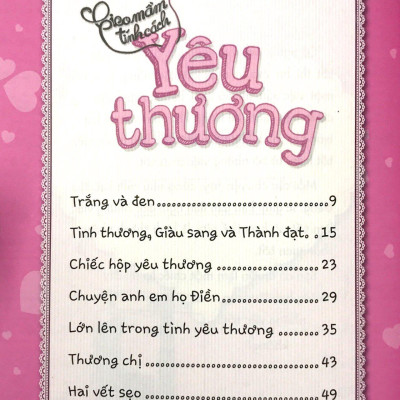 Gieo mầm
tính cách
Yêu
thương
Trắng và đen.......................9
Tình thương, Giàu sang và Thành đạt. . 15
Chiếc hộp yêu thương ............... 23
Chuyện anh em họ Điền............. 29
Lớn lên trong tình yêu thương ....... 35
Thương chị ......................... 43
Hai vết sẹo ........................ 49